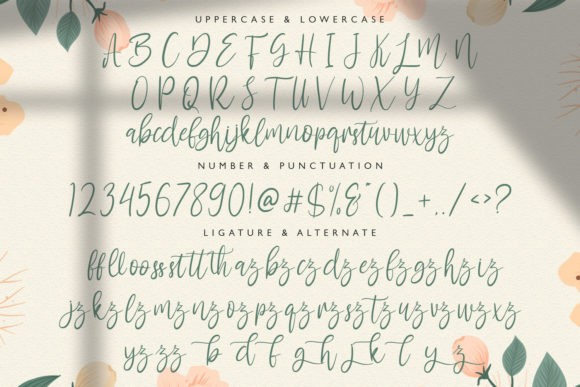 UPPERCASE & LOWERCASE
A B C D E F G H I J K L M N
O P Q R S T U V W X Y Z
abcdefghijklmnopqrstuvwxyz
NUMBER & PUNCTUATION
1234567890!@#$%&"()_+,./<>?
LIGATURE & ALTERNATE
fflloossstttth az bz cz dz ez fz gz hz iz
jz kz lz mz nz oz pz qz rz sz tz uz vz wz xz
yz zz b d f g h j k l y z